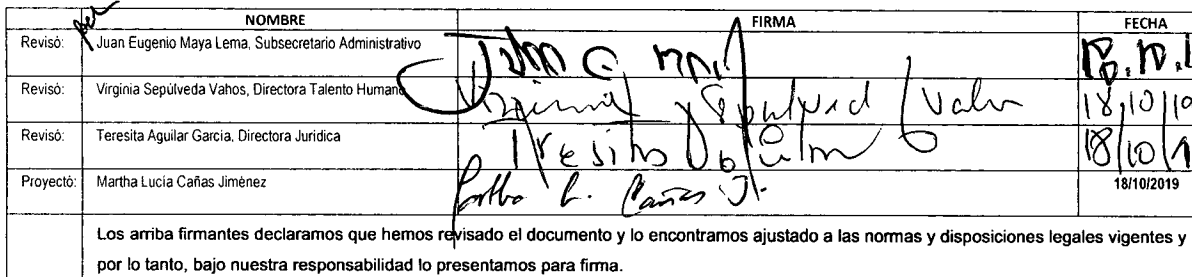 NOMBRE FIRMA FECHA
Revisó: Juan Eugenio Maya Lema, Subsecretario Administrativo
Revisó: Virginia Sepúlveda Vahos, Directora Talento Humano Virginia Sepulved Vaho 18,10,19
Revisó: Teresita Aguilar García, Directora Jurídica Teresita Aguilar 18/10/1
Proyectó: Martha Lucía Cañas Jiménez Martha L. Cañas J. 18/10/2019
Los arriba firmantes declaramos que hemos revisado el documento y lo encontramos ajustado a las normas y disposiciones legales vigentes y
por lo tanto, bajo nuestra responsabilidad lo presentamos para firma.